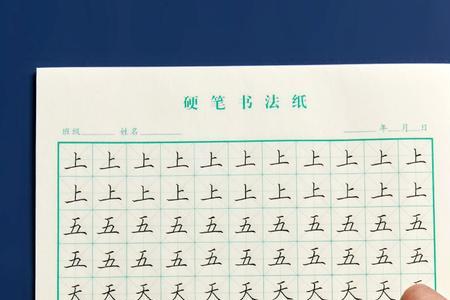 硬笔书法纸
班级 姓名 年 月 日
上 上 上 上 上 上 上 上 上 上 上
上 上 上 上 上 上 上 上 上 上 上
五 五 五 五 五 五 五 五 五 五 五
五 五 五 五 五 五 五 五 五 五 五
天 天 天 天 天 天 天 天 天 天